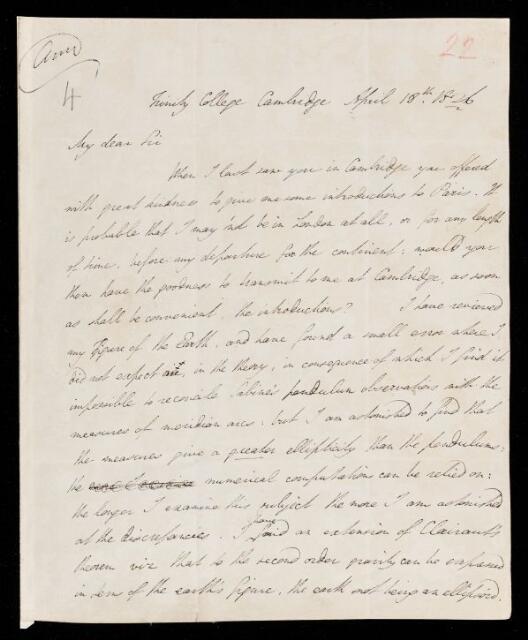 Ansd
22
4
Trinity College Cambridge April 18th. 1826
My dear Sir
When I last saw you in Cambridge you offered
with great kindness to give me some introductions to Paris. It
is probable that I may not be in London at all, or for any length
of time, before my departure for the continent: would you
then have the goodness to transmit to me at Cambridge, as soon
as shall be convenient, the introductions? I have reviewed
my Figure of the Earth, and have found a small error where I
did not expect it, in the theory, in consequence of which I find it
impossible to reconcile Sabine's pendulum observations with the
measures of meridian arcs: but I am astonished to find that
the measures give a greater ellipticity than the pendulums:
the numerical computations can be relied on:
the longer I examine this subject the more I am astonished
at the discrepancies. I have found an extension of Clairaut's
theorem viz that to the second order gravity can be expressed
in terms of the earth's figure, the earth not being an ellipsoid.